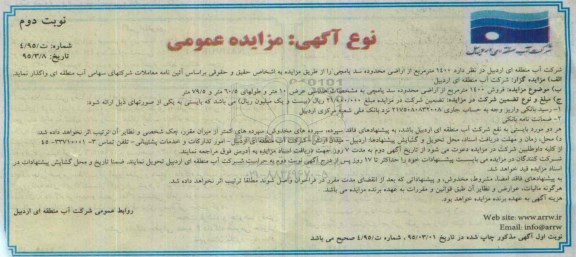 نوبت دوم
شرکت آب منطقه ای اردبیل
نوع آگهی: مزایده عمومی
شماره: ت/۴/۹۵
تاریخ: ۹۵/۳/۸
شرکت آب منطقه ای اردبیل در نظر دارد ۱۴۰۰ مترمربع از اراضی محدوده سد یامچی را از طریق مزایده به اشخاص حقیق و حقوقی براساس آئین نامه معاملات شرکتهای سهامی آب منطقه ای واگذار نماید.
الف) مزایده گزار: شرکت آب منطقه ای اردبیل
ب) موضوع مزایده: فروش ۱۴۰۰ مترمربع از اراضی محدوده سد یامچی به مشخصات عرض ۱۰ متر و طولهای ۶۰/۵ متر و ۷۹/۵ متر
ج) مبلغ و نوع تضمین شرکت در مزایده: تضمین شرکت در مزایده مبلغ ریال (بیست و یک میلیون ریال) می باشد که بایستی به یکی از صورتهای ذیل ارائه شود:
۱- رسید بانکی واریز وجه به حساب جاری ۲۱۷۵۱۸۰۸۳۲۰۰۸ نزد بانک ملی شعبه مرکزی اردبیل
۲- ضمانت نامه بانکی
که در مورد بایستی به نفع شرکت آب منطقه ای اردبیل باشد، به پیشنهادهای فاقد سپرده، سپرده های مخدوش، سپرده های کمتر از میزان مقرر، چک شخصی و نظایر آن ترتیب اثر نخواهد داد.
د) محل، زمان و مهلت دریافت اسناد، محل تحویل و گشایش پیشنهادها: اردبیل- شرکت آب منطقه ای اردبیل - امور تدارکات و خدمات پشتیبانی - تلفن تماس
از کلیه داوطلبین شرکت در مزایده دعوت می شود از تاریخ آگهی دوم به مدت ۷ روز جهت دریافت اسناد مزایده به آدرس فوق مراجعه نمایند.
شرکت کنندگان در مزایده می بایست پیشنهادات خود را حداکثر تا ۱۷ روز پس از درج آگهی نوبت دوم به حراست شرکت آب منطقه ای اردبیل تحویل نمایند. ضمنا تاریخ و محل گشایش پیشنهادات در اسناد مزایده قید خواهد شد.
به پیشنهادهای فاقد امضا، مشروط، مخدوش، و پیشنهاداتی که بعد از انقضای مدت مقرر در فراخوان واصل شوند مطلقا ترتیب اثر نخواهد داد شد.
هرگونه مالیات، عوارض و نظایر آن طبق قوانین و مقررات به عهده برنده مزایده می باشد
هزینه آگهی به عهده برنده مزایده خواهد بود.
روابط عمومی شرکت آب منطقه ای اردبیل
Web site: www.arrw.ir
Email: info@arrw.ir
نوبت اول آگهی مذکور چاپ شده در تاریخ ۹۵/۰۳/۰۱، شماره ت/۴/۹۵ صحیح می باشد